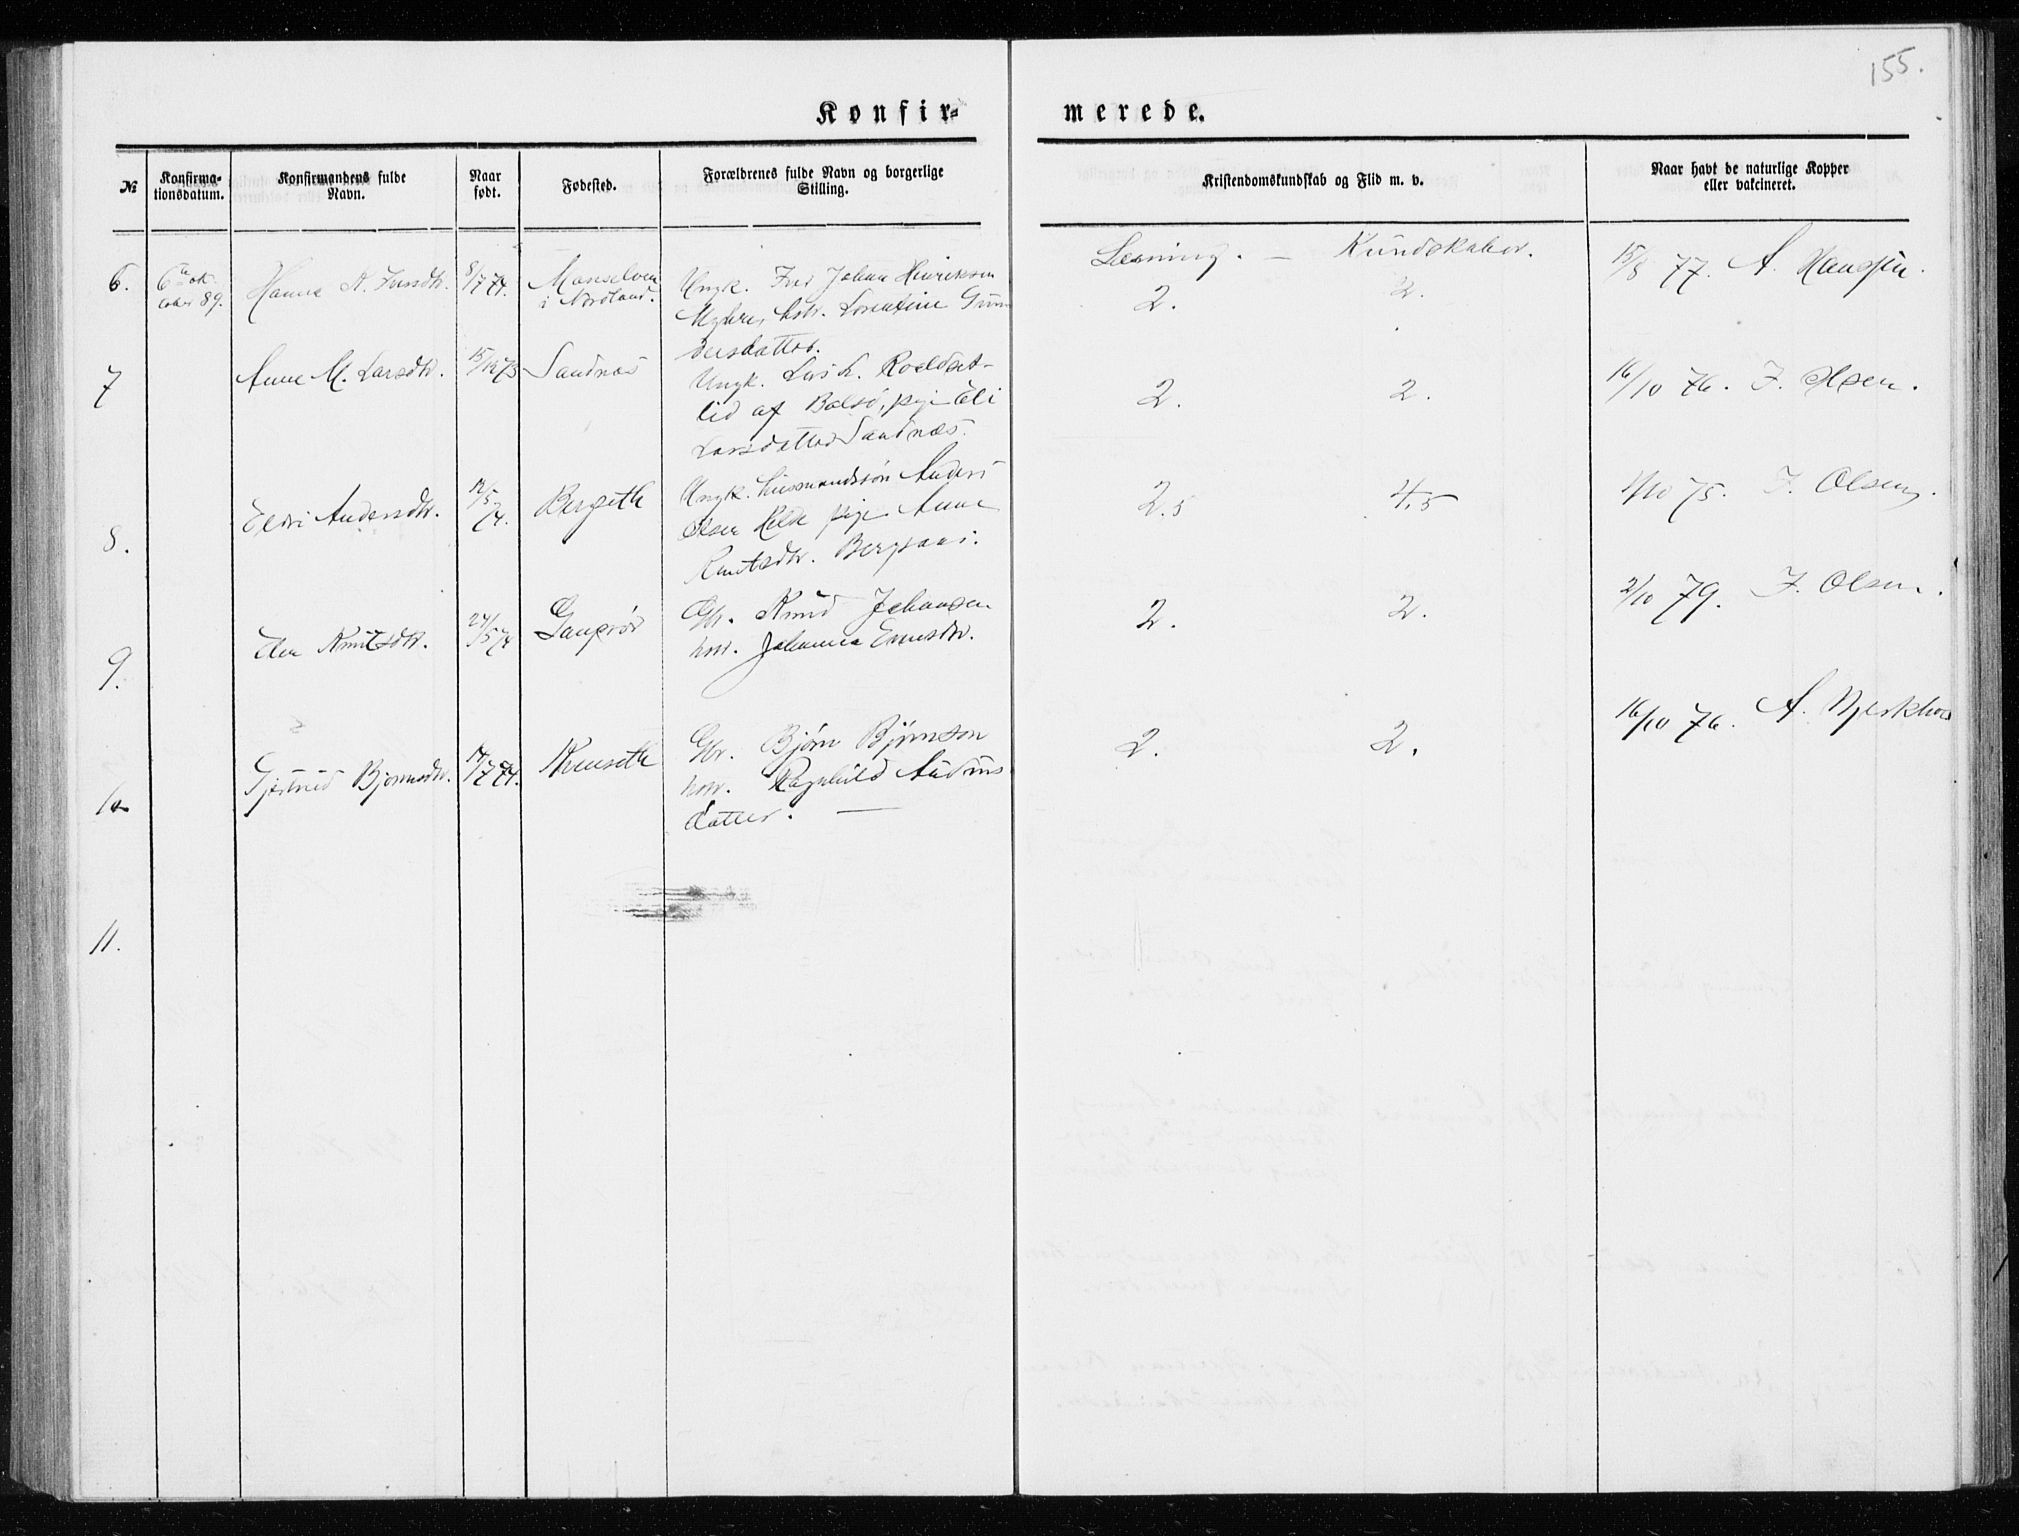 155.
Konfir=
merede.
№
Konfirma-
tionsdatum.
Konfirmandens fulde
Navn.
Naar
født.
Fødested.
Forældrenes fulde Navn og borgerlige
Stilling.
Kristendomskundskab og Flid m. v.
Naar havt de naturlige Kopper
eller vakcineret.
Læsning. — Kundskaber.
6.
6te ok
tober 89.
Hanna
8/7 74.
i Nordland.
Ungk. Johan Hinriksen
Myhre, hstr. Lorentine
dersdatter.
2.
2.
15/8 77. A. Hansen.
7
Anne M. Larsdtr.
15/12 73
Sandnæs
Ungk. Lars L. Roaldset-
lid af Bolsø, pige Eli
Larsdatter Sandnæs.
2.
2.
16/10 76. J. Olsen.
8.
Eldri Andersdtr.
12/5 74.
Bergseth
Ungk. Husmandssøn Anders
Olsen Helde pige Anne
Knutsdtr. Bergsani.
2.5
4.5
4/10 75. J. Olsen.
9.
Knutsdtr.
24/5 74
Gbr. Knud Johansen
hstr. Johanna
2.
2.
2/10 79. J. Olsen.
10
Gjertrud Bjørnsdtr.
14/7 74.
Gbr. Bjørn Bjørnson
hstr. Ragnhild Anders
datter. —
2.
2.
16/10 76. A.
11.